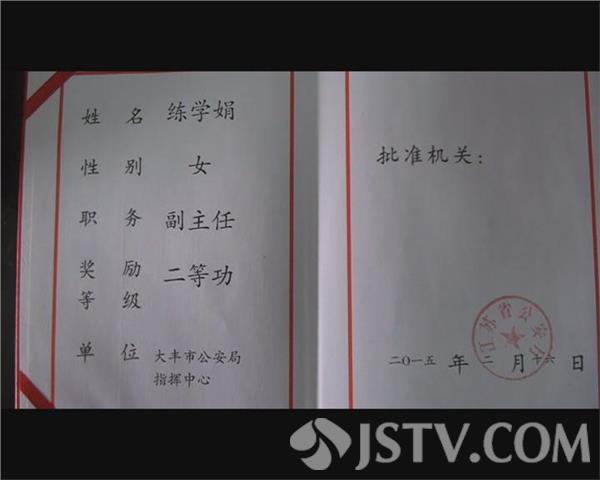 姓名 练学娟
性别 女
职务 副主任
奖励等级 二等功
单位 大丰市公安局
指挥中心
批准机关：
江苏省公安厅
二〇一五年二月十六日
JSTV.COM